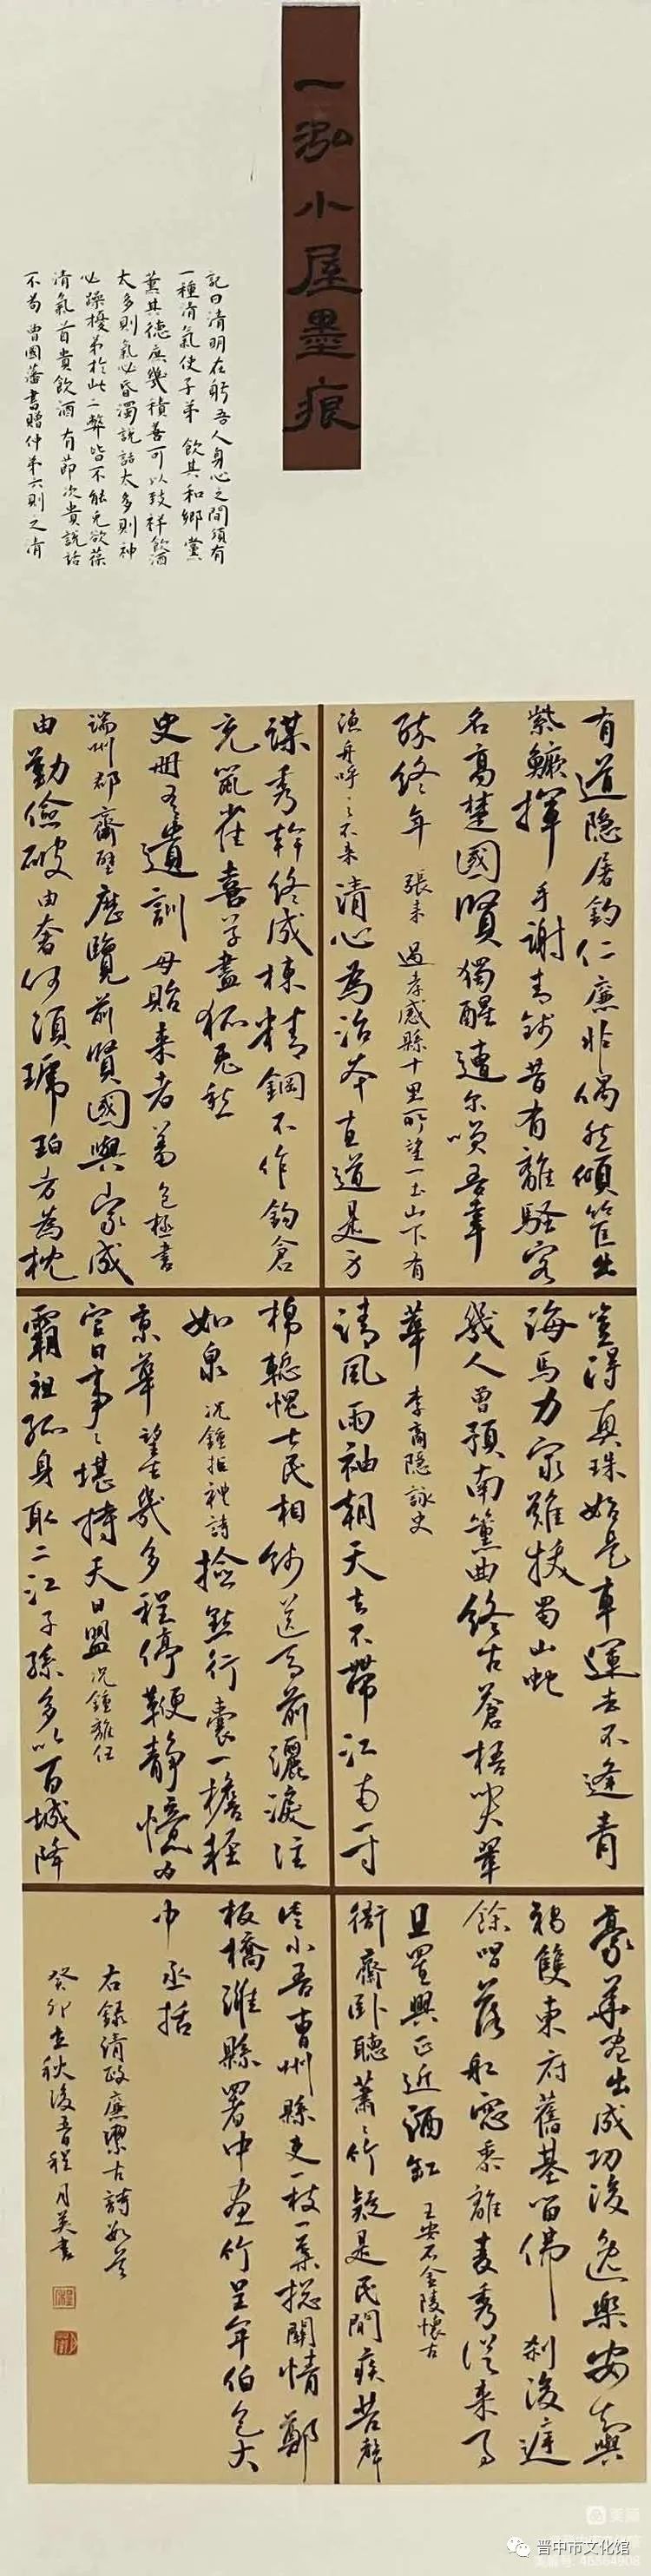 一泓小屋墨痕
記曰清明在躬吾人身心之間須有
一種清氣使子弟飲其和鄉黨
薰其德庶幾積善可以致祥飲酒
太多則氣必昏濁說話太多則神
必躁擾弟於此二弊皆不能免欲葆
清氣首貴飲酒有節次貴說話
不苟曾國藩書贈仲弟六則之清
有道隐屠釣仁廉非偶然傾筐出
紫鱖揮手謝青錢昔有離騷客
名高楚國賢獨醒遭尔嘆吾輩
殊終年 張耒 過孝感縣十里所望一土山下有
漁舟呼之不来 清心為治本直道是身
謀秀幹終成棟精鋼不作鉤倉
充鼠雀喜草盡狐兔愁
史冊有遺訓毋貽来者羞 包拯書
端州郡齋壁 歷覽前賢國與家成
由勤儉破由奢何須琥珀方為枕
豈得真珠始是車運去不逢青
海馬力窮難拔蜀山蛇
幾人曾預南薰曲終古蒼梧哭翠
華 李商隱詠史
清風兩袖朝天去不帶江南一寸
棉慚愧士民相餞送馬前灑淚注
如泉 况鍾拒禮詩 撿點行囊一擔輕
京華望去幾多程停鞭靜憶為
官日事々堪持天日盟 况鍾離任
霸祖孤身取二江子孫多以百城降
豪華盡出成功後逸樂安知與
禍雙東府舊基留佛剎後庭
餘唱落船窗黍離麥秀從来事
且置興亡近酒缸 王安石金陵懷古
衙齋卧聽蕭々竹疑是民間疾苦聲
些小吾曹州縣吏一枝一葉揔關情 鄭
板橋濰縣署中畫竹呈年伯包大
中丞括
右錄清政廉潔古詩數首
癸卯立秋後晉程月英書
美篇
晋中市文化馆